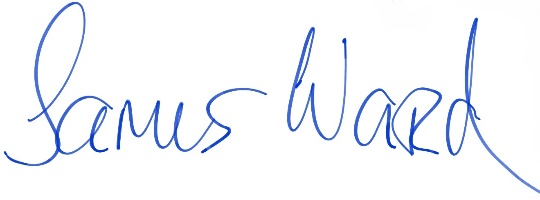 James Ward